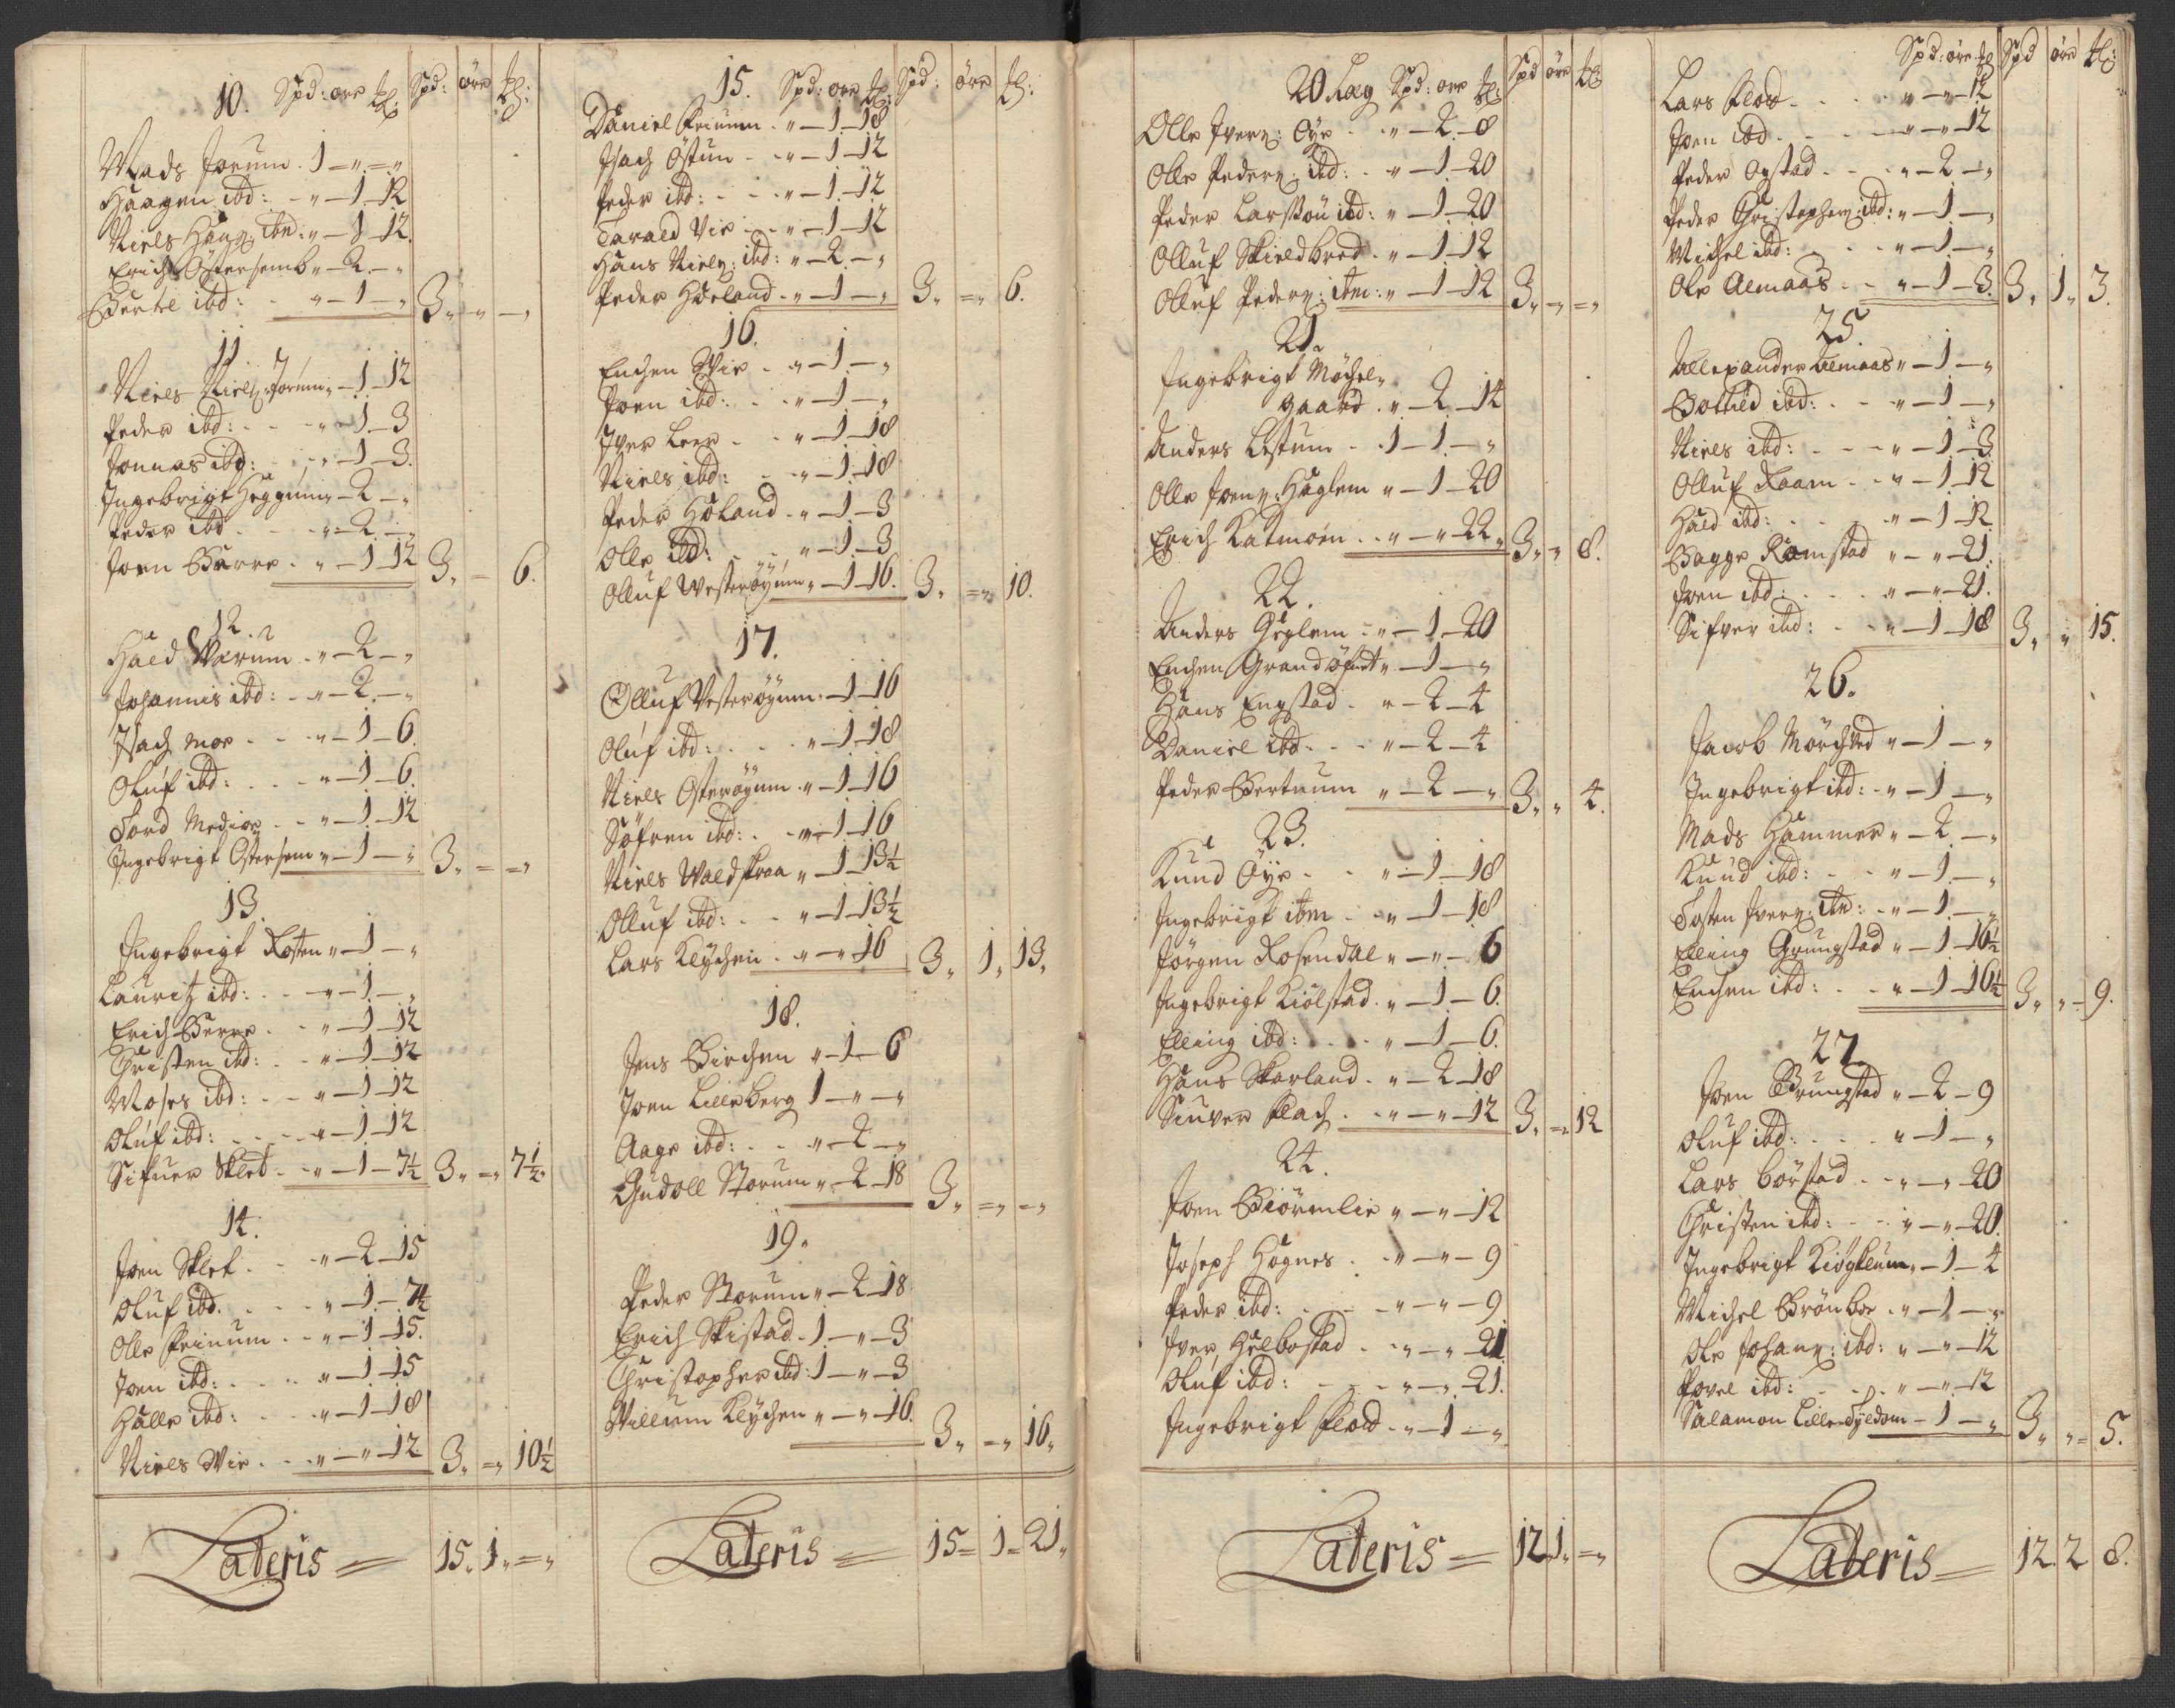 10. Spd: ore Spd: öre
Mads Jorum . 1 – „ – „
Haagen ibd: – „ – 1 – 12
Niels Hanß: ibd: „ – 1 – 12.
Erich Østersemb „ – 2. – „
Bertel ibd: „ – 1 – „ 3 „ – „ – „
11.
Niels Nielß: Jorum „ – 1 – 12
Peder ibd: – – „ – 1 – 3
Jonnas ibd: – „ – 1 – 3.
Ingebrigt Heggum „ – 2 – „
Peder ibd – „ – 2 – „
Joen Berre . „ – 1 – 12 3 „ – 6.
12.
Hald Warum . „ – 2 – „
Johannis ibd: – „ – 2. – „
Isach Moe – – „ – 1 – 6.
Oluf ibd: . . „ – 1 – 6.
Tord Medioe – „ – 1 – 12
Ingebrigt Ostersem „ – 1 – „ 3 „ – „
13.
Ingebrigt Rosten „ – 1 – „
Lauritz ibd: – „ – 1 – „
Erich Berre – „ – 1 – 12
Christen ibd: – „ – 1 – 12
Moses ibd: – – „ – 1 – 12
Oluf ibd: – – „ – 1 – 12
Sifuer Sklet – „ – 1 – 7½ 3 „ = „ 7½.
14.
Joen Sklet . – „ – 2 – 15
Oluf ibd. . . „ – 1 – 7½
Olle Preinum – „ – 1 – 15.
Joen ibd: . . „ – 1 – 15
Halle ibd: . . „ – 1 – 18
Niels Wie . – „ – „ – 12 3 „ = „ 10½
Lateris = 15. 1 „ = „
15. Spd: ore Spd: öre
Daniel Preinum . „ – 1 – 18
Isach Östun – – „ – 1 – 12
Peder ibd: – – „ – 1 – 12
Tarald Vie – – „ – 1 – 12
Hans Nielß: ibd: „ – 2 – „
Peder Høeland – „ – 1 – „ 3 „ = „ 6.
16.
Enchen Wie . „ – 1 – „
Joen ibd: . – „ – 1 – „
Iver Leer – – „ – 1 – 18
Niels ibd: – „ – 1 – 18
Peder Høland . „ – 1 – 3
Olle ibd: . . „ – 1 – 3
Olluf Westerøyum „ – 1 – 16. 3 „ = „ 10.
17.
Olluf Vesterøyum – 1 – 16
Oluf ibd: . . „ – 1 – 18
Niels Osterøyum „ – 1 – 16
Söfren ibd: . „ – 1 – 16
Niels Waldskraa „ – 1 – 13½
Olluf ibd: . . „ – 1 – 13½
Lars Kleychen . „ – „ 16 3 „ 1 „ 13 „
18.
Jens Birchen „ – 1 – 6
Joen Lilleberg 1 – „ – „
Aage ibd: . . „ – 2 – „
Gudoll Storum „ – 2 – 18 3 „ = „ = „
19.
Peder Storum „ – 2 – 18
Erich Skistad . 1 – „ – 3
Christopher ibd: 1 – „ – 3
Willum Kleychen „ – „ – 16. 3 „ = „ 16 „
Lateris = 15 = 1 = 21 „
20 Læg Spd: ore Spd öre
Olle Iverß: Øye . „ – 2. – 8
Olle Pederß: ibd: . „ – 1 – 20
Peder Larßon ibd: „ – 1 – 20
Olluf Skieldbred . „ – 1 – 12
Olluf Pederß: itm: „ – 1 – 12 3 „ = „ = „
21.
Ingebrigt Möchel„
gaard . „ – 2 – 14
Anders Lestum – . 1 – 1 – „
Olle Joenß: Haglem „ – 1 – 20
Erich Katmoen . „ – „ 22 „ 3 „ „ 8.
22.
Anders Geglem – „ – 1 – 20
Enchen Grandösset „ – 1 – „
Hans Engstad . „ – 2 – 4
Daniel ibd – – „ – 2 – 4
Peder Bertnum „ – 2 – „ 3 „ „ 4.
23.
Knud Øye – – „ – 1 – 18
Ingebrigt itm . „ – 1 – 18
Jörgen Rosendal „ – „ – 6
Ingebrigt Kiölstad . „ – 1 – 6.
Elling ibd: . . . „ – 1 – 6.
Hans Skarland . „ – 2 – 18
Siuver Flach . „ – „ – 12 3 „ = „ 12
24.
Joen Biörnlie „ – „ – 12
Joseph Hognes . „ – „ – 9
Peder ibd: – – „ – „ – 9
Iver Helbostad . „ – „ – 21
Oluf ibd: – – „ – „ – 21.
Ingebrigt Flod . „ – 1 – „
Lateris = 12 1 „ = „
Spd: öre Spd öre
Lars Flod – . . „ – „ – 12
Joen ibd – . – „ – 12
Peder Ogstad – – „ – 2 – „
Peder Christopherß: ibd: „ – 1 – „
Michel ibd: – – „ – 1 – „
Ole Aemaas – „ – 1 – 3. 3 „ 1 „ 3.
25.
Allexander Aemaas „ – 1 – „
Botted ibd: . – „ – 1 – „
Niels ibd: – – „ – 1 – 3
Olluf Raam – „ – 1 – 12
Hald ibd: . . „ – 1 – 12
Bagge Ramstad „ – „ – 21.
Joen ibd: . . „ – „ – 21.
Sifver ibd: – „ – 1 – 18 3 „ „ 15.
26.
Jacob Mörchved „ – 1 – „
Ingebrigt ibd: – „ – 1 – „
Mads Hammer „ – 2. – „
Knud ibd: – – „ – 1. – „
Tosten Iverß: ibd: – „ – 1. – „
Elling Grungstad „ – 1 – 16½
Enchen ibd: . – „ – 1 – 16½ 3 „ „ – 9.
27.
Joen Grungstad „ – 2 – 9
Oluf ibd: . . „ – 1 – „
Lars Börstad – „ – „ – 20
Christen ibd: – „ – „ – 20.
Ingebrigt Kiöglum „ – 1 – 4
Michel Brönboe . „ – 1 – „
Ole Johanß: ibd: „ – „ – 12
Povel ibd: . . „ – „ – 12
Salamon Lille Fyldom – 1 – „ 3 „ „ = 5.
Lateris = 12. 2 8.